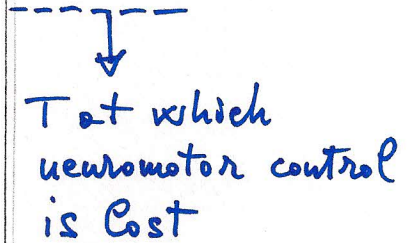 T at which
neuromotor control
is lost